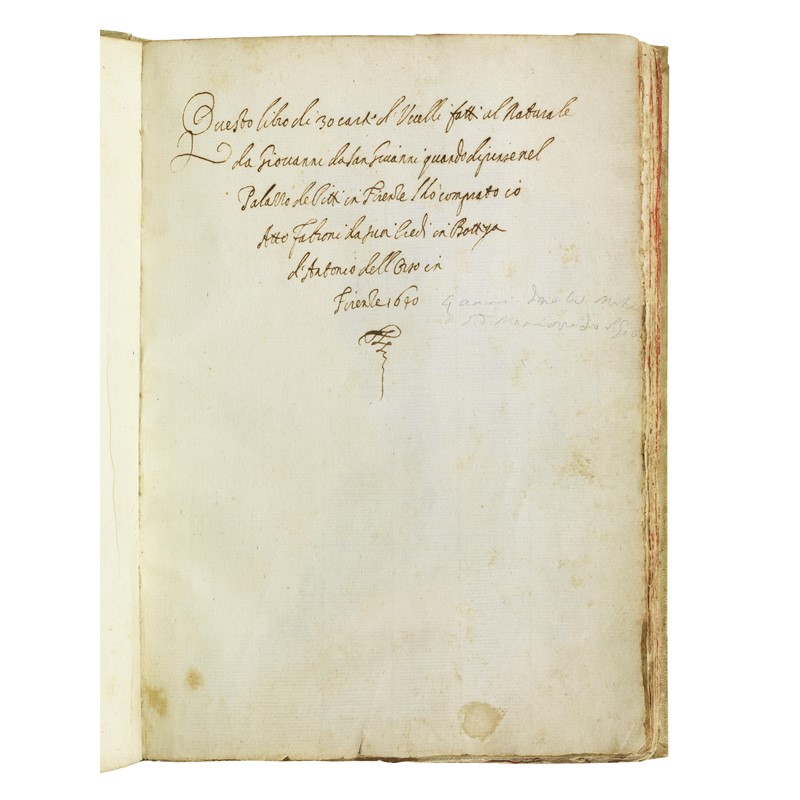 Questo libro di 30 cart.e d'Vcelli fatti al Naturale
da Giovanni da San Giuanni quando dipinse nel
Palazzo de Pitti in Firenze l'hò comprato io
Atto Fabroni da suoi Eredi in Bottega
d'Antonio dell'Orso in
Firenze 1640